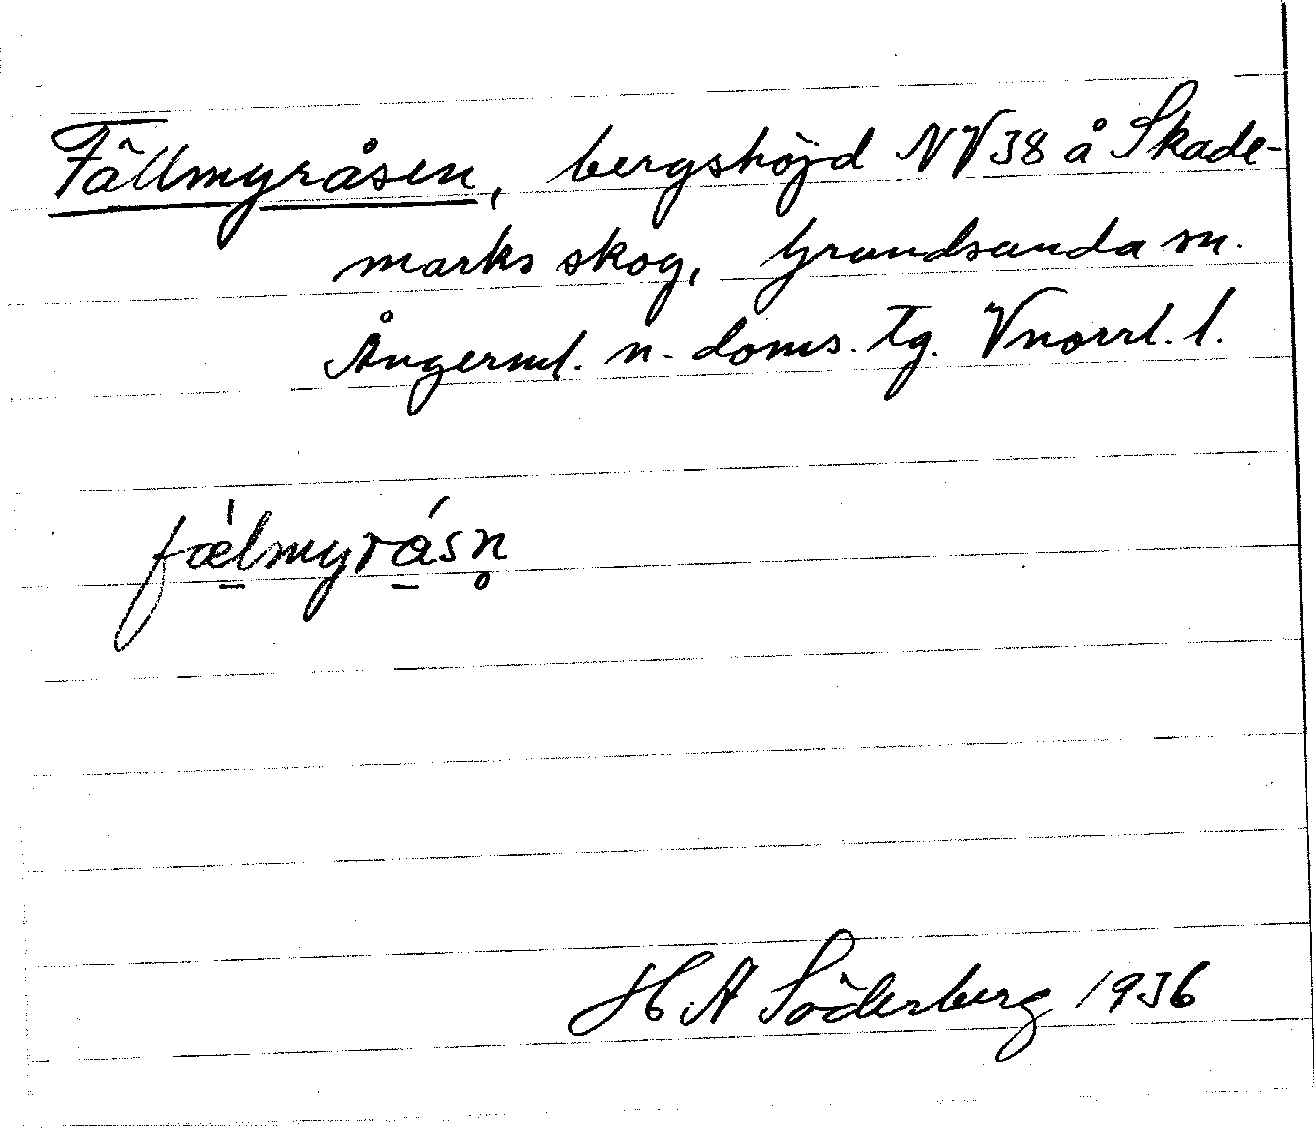 Fällmyråsen, bergshöjd NV38 å Skade-
marks skog, Grundsunda sn.
Ångerml. n. doms. tg. Vnorrl. l.
fǽ̱lmyrá̱sn̥
H. A Söderberg 1936